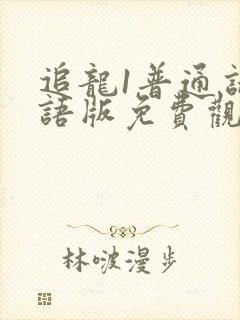 追龍1普通
語版免費觀
林啵漫步